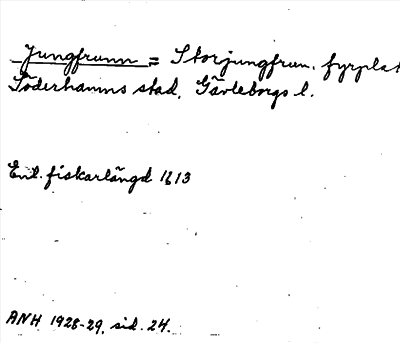 Jungfrunn = Storjungfrun, fyrplat
Söderhamns stad, Gävleborgs l.
Enl. fiskarlängd 1613
ANH 1928-29, sid. 24.